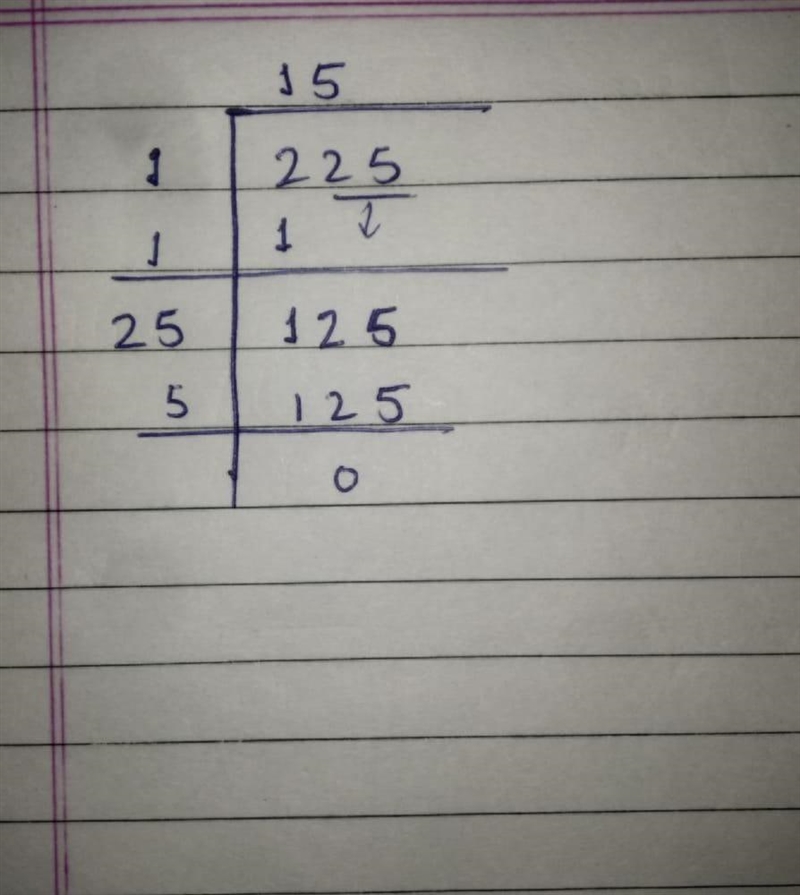 15
1 225
1 1 ↓
25 125
5 125
0